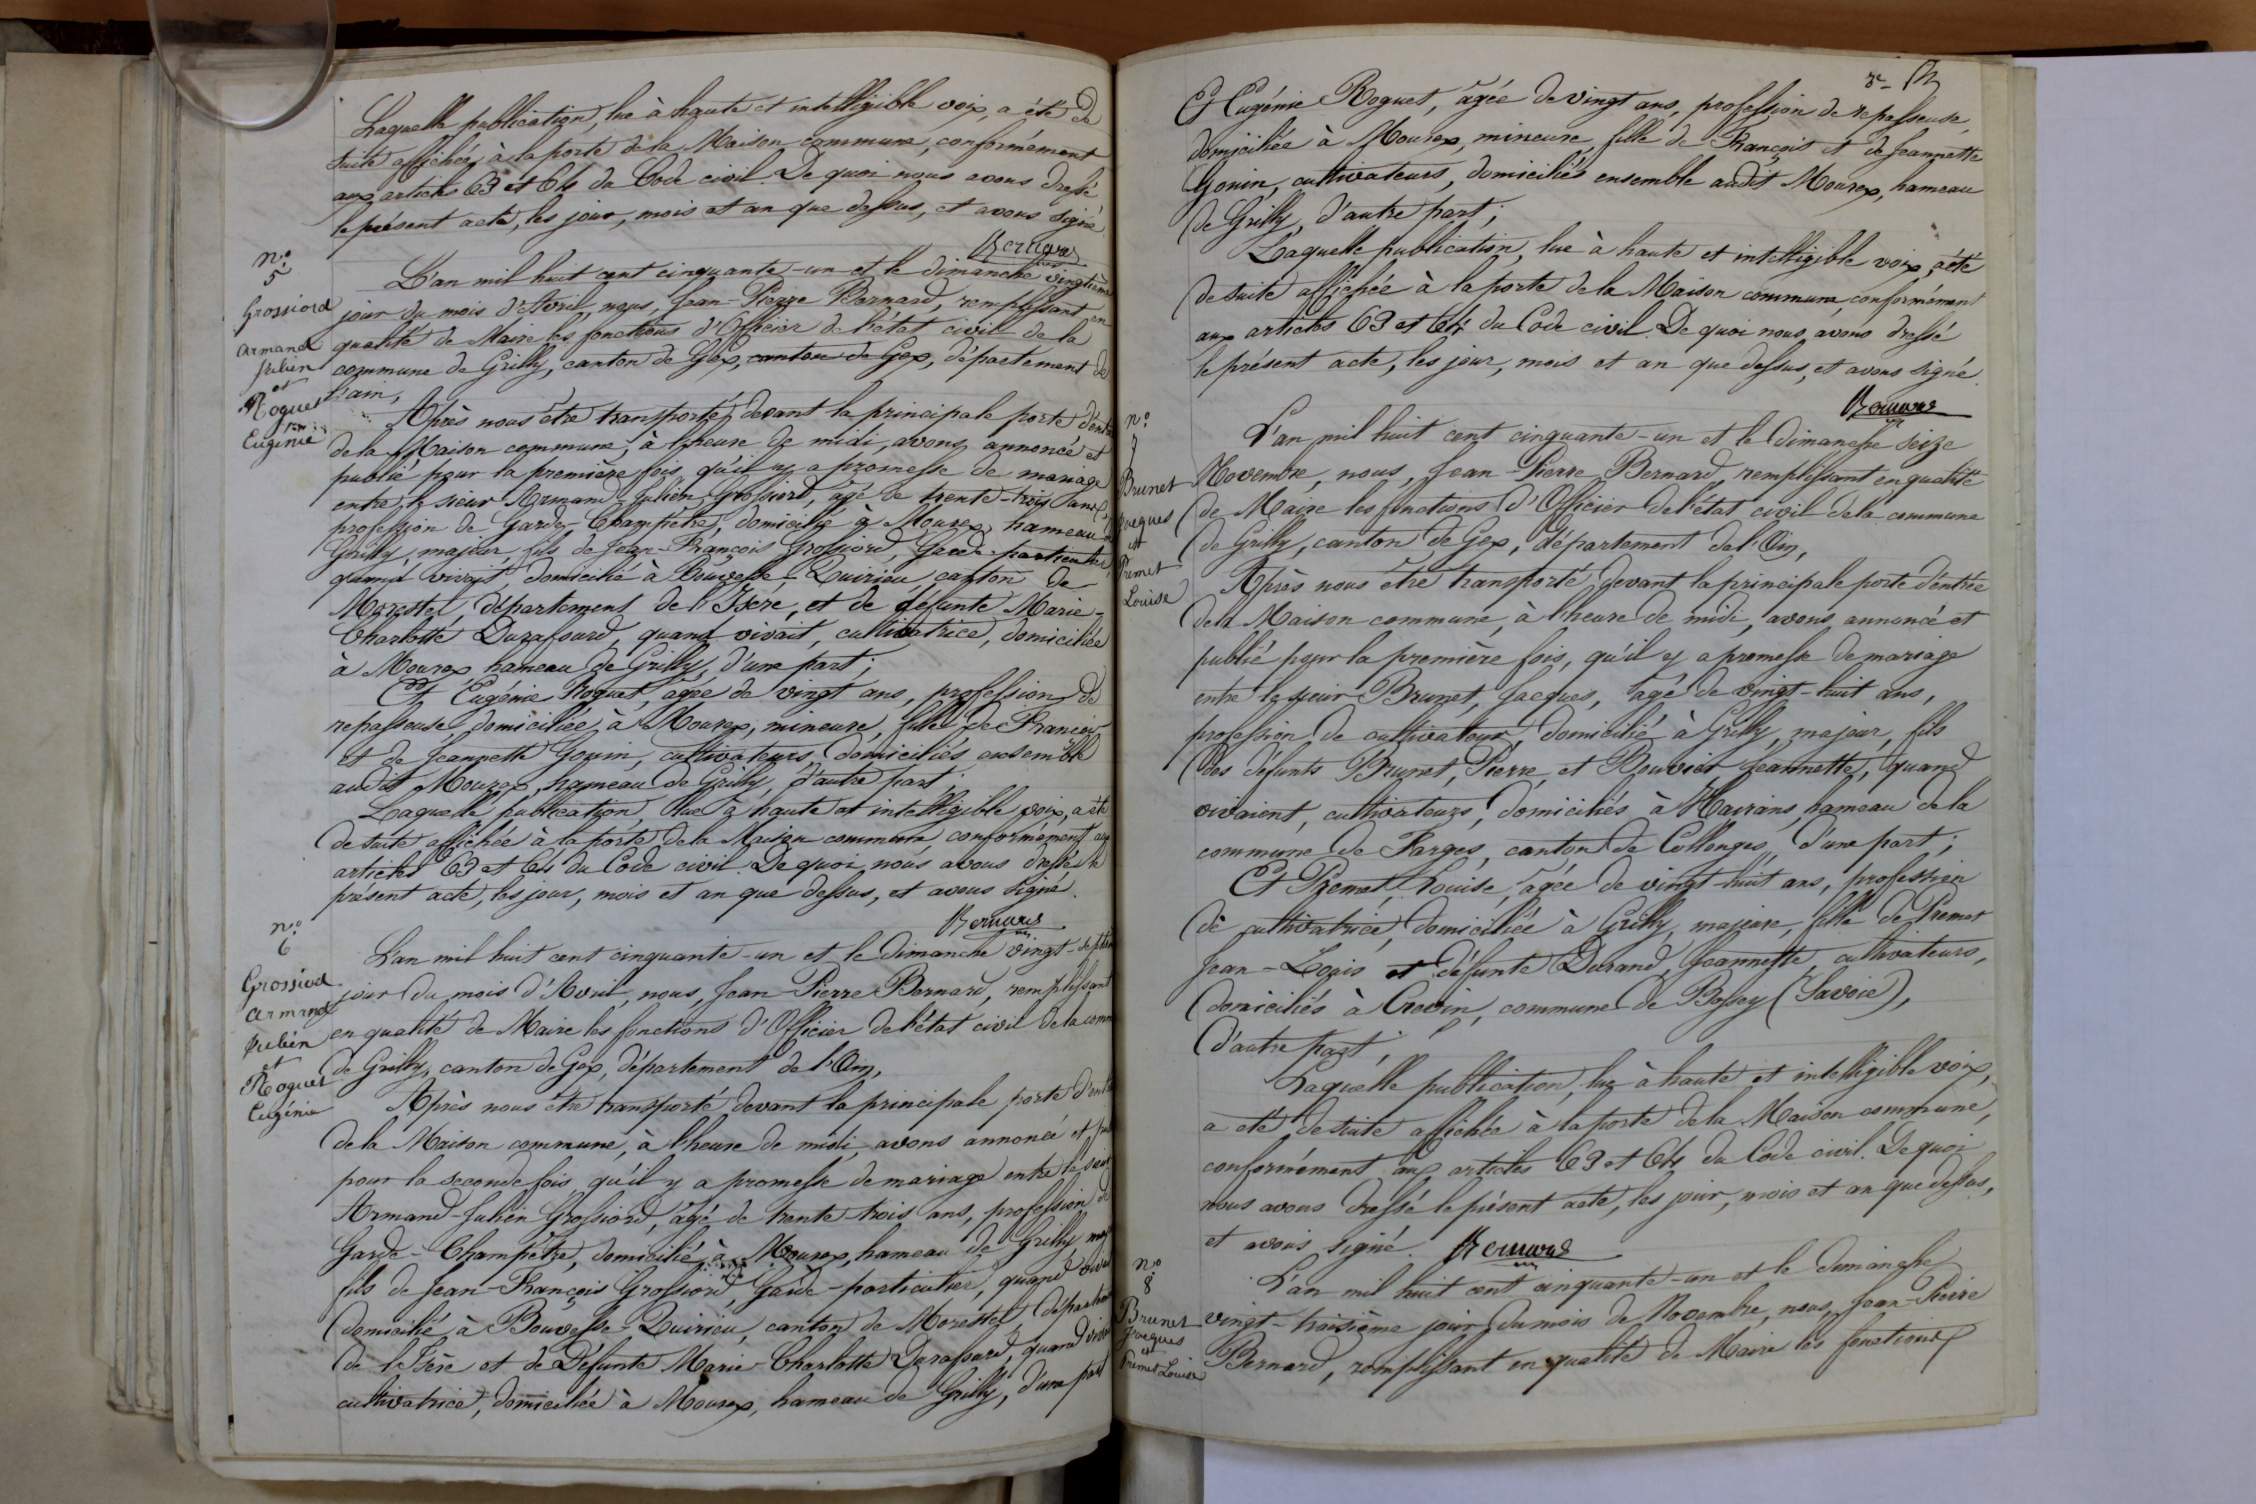 Laquelle publication, lue à haute et intelligible voix, a été de
suite affichée à la porte de la Maison commune, conformément
aux articles 63 et 64 du Code civil. De quoi nous avons dressé
le présent acte, les jour, mois et an que dessus, et avons signé
Bernard
n.º
5
Grossiord
Armand
Julien
et
Roguet
Eugénie
L'an mil huit cent cinquante-un et le dimanche vingtième
jour du mois d'Avril, nous, Jean-Pierre Bernard, remplissant en
qualité de Maire les fonctions d'Officier de l'état civil de la
commune de Grilly, canton de Gex, canton de Gex, département de
l'ain,
Après nous être transporté devant la principale porte d'entrée
de la Maison commune, à l'heure de midi, avons annoncé et
publié pour la première fois, qu'il y a promesse de mariage
entre le sieur Armand-Julien Grossiord, âgé de trente-trois ans,
profession de Garde-Champêtre, domicilié à Mourex, hameau de
Grilly, majeur, fils de Jean-François Grossiord, Garde-particulier,
quand vivait, domicilié à Bouvesse-Quirieu, canton de
Morestel, département de l'Isère, et de défunte Marie-
Charlotte Durafourd, quand vivait, cultivatrice, domiciliée
à Mourex, hameau de Grilly, d'une part;
Et Eugénie Roguet, âgée de vingt ans, profession de
repasseuse, domiciliée à Mourex, mineure, fille de François
et de Jeannette Gonin, cultivateurs, domiciliés ensemble
audit Mourex, hameau de Grilly, d'autre part;
Laquelle publication, lue à haute et intelligible voix, a été
de suite affichée à la porte de la Maison commune, conformément aux
articles 63 et 64 du Code civil. De quoi nous avons dressé le
présent acte, les jour, mois et an que dessus, et avons signé.
Bernard
n.º
6
Grossiord
Armand
Julien
et
Roguet
Eugénie
L'an mil huit cent cinquante-un et le dimanche vingt-septième
jour du mois d'Avril, nous, Jean Pierre Bernard, remplissant
en qualité de Maire les fonctions d'Officier de l'état civil de la comm
de Grilly, canton de Gex, département de l'Ain,
Après nous être transporté devant la principale porte d'entrée
de la Maison commune, à l'heure de midi, avons annoncé et pub
pour la seconde fois, qu'il y a promesse de mariage entre le sieur
Armand-Julien Grossiord, âgé de trente-trois ans, profession de
Garde-Champêtre, domicilié à Mourex, hameau de Grilly, maj
fils de Jean-François Grossiord, Garde-particulier, quand vivait
domicilié à Bouvesse-Quirieu, canton de Morestel, département
de l'Isère et de Défunte Marie-Charlotte Durafourd, quand vivait
cultivatrice, domiciliée à Mourex, hameau de Grilly, d'une part
Et Eugénie Roguet, âgée de vingt ans, profession de repasseuse,
domiciliée à Mourex, mineure, fille de François et de Jeannette
Gonin, cultivateurs, domiciliés ensemble audit Mourex, hameau
de Grilly, d'autre part;
Laquelle publication, lue à haute et intelligible voix, a été
de suite affichée à la porte de la Maison commune, conformément
aux articles 63 et 64 du Code civil. De quoi nous avons dressé
le présent acte, les jour, mois et an que dessus, et avons signé.
Bernard
n.º
7
Brunet
Jacques
et
Premet
Louise
L'an mil huit cent cinquante-un et le dimanche seize
Novembre, nous, Jean-Pierre Bernard, remplissant en qualité
de Maire les fonctions d'Officier de l'état civil de la commune
de Grilly, canton de Gex, département de l'Ain,
Après nous être transporté devant la principale porte d'entrée
de la Maison commune, à l'heure de midi, avons annoncé et
publié pour la première fois, qu'il y a promesse de mariage
entre le sieur Brunet, Jacques, âgé de vingt-huit ans,
profession de cultivateur, domicilié à Grilly, majeur, fils
des défunts Brunet, Pierre et Bouvier Jeannette, quand
vivaient, cultivateurs, domiciliés à Hairans, hameau de la
commune de Farges, canton de Collonges, d'une part;
Et Premet, Louise, âgée de vingt-huit ans, profession
de cultivatrice, domiciliée à Grilly, majeure, fille de Premet
Jean-Louis et défunte Durand, Jeannette, cultivateurs,
domiciliés à Crevin, commune de Bossey (Savoie),
d'autre part;
Laquelle publication, lue à haute et intelligible voix,
a été de suite affichée à la porte de la Maison commune,
conformément aux articles 63 et 64 du Code civil. De quoi
nous avons dressé le présent acte, les jour, mois et an que dessus,
et avons signé. Bernard
n.º
8
Brunet
Jacques
et
Premet Louise
L'an mil huit cent cinquante-un et le dimanche
vingt-troisième jour du mois de Novembre, nous, Jean-Pierre
Bernard, remplissant en qualité de Maire les fonctions